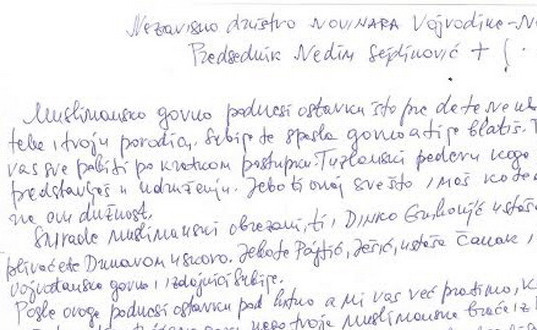 Nezavisno društvo NOVINARA Vojvodine-N
Predsednik Nedim Sejdinović + (.
Muslimansko govno podnesi ostavku što pre da te ne ub
tebe i tvoju porodicu. Srbija te spasla govno a ti je blatiš. T
vas sve pobiti po kratkom postupku. Tuzlanski pederu koga
predstavljaš u udruženju. Jebo ti onaj sve što imaš ko te
na ovu dužnost.
Smrade muslimanski obrezani, ti, DINKO Gruhonjić ustaša
plivaćete Dunavom uskoro. Jebote Pajtić, Ješić, ustaša Čanak i
vojvođansko govno i izdajnici Srbije.
Posle ovoga podnesi ostavku pod hitno a mi vas već pratimo, K
nego tvoje muslimanske braće iz